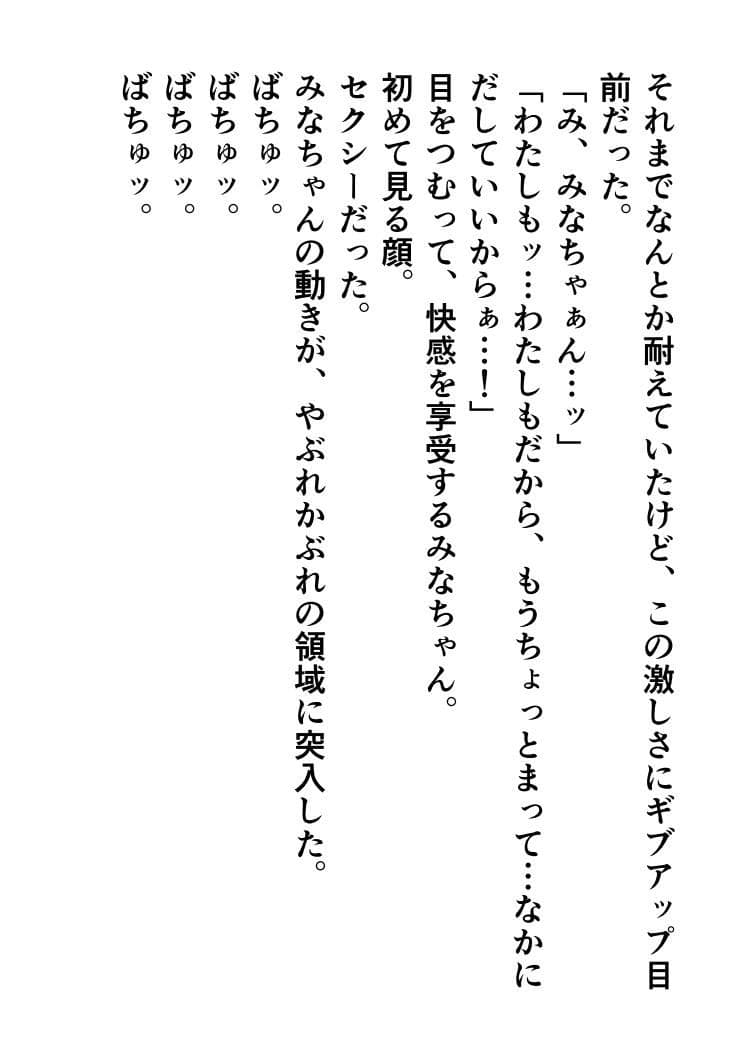 それまでなんとか耐えていたけど、この激しさにギブアップ目
前だった。
「み、みなちゃぁん…ッ」
「わたしもッ…わたしもだから、もうちょっとまって…なかに
だしていいからぁ…！」
目をつむって、快感を享受するみなちゃん。
初めて見る顔。
セクシーだった。
みなちゃんの動きが、やぶれかぶれの領域に突入した。
ばちゅッ。
ばちゅッ。
ばちゅッ。
ばちゅッ。